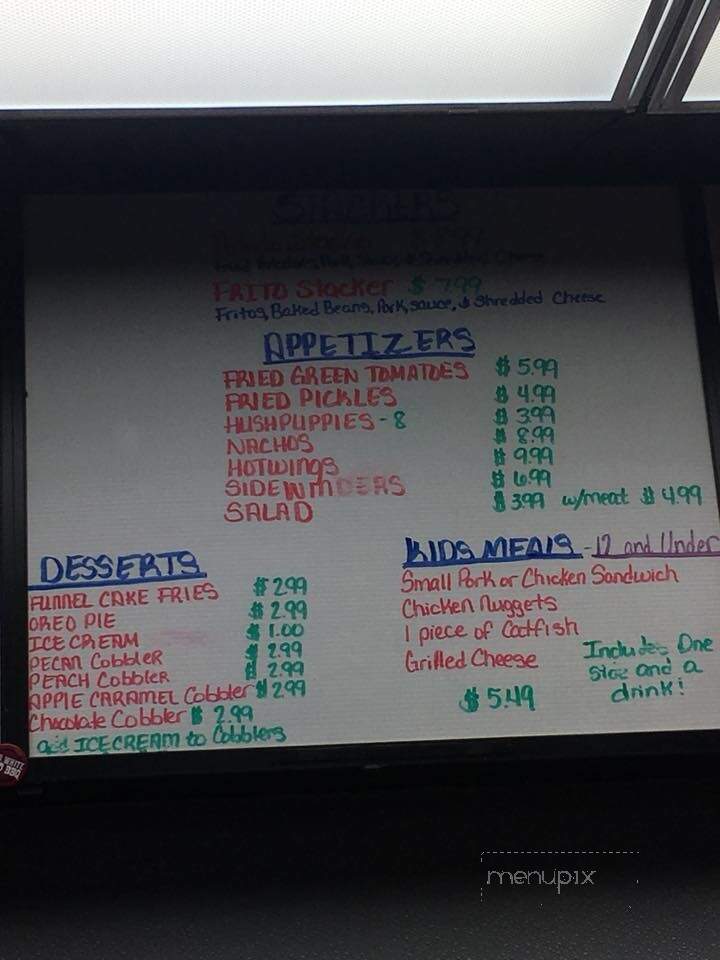 STACKERS
FRITO Stacker $ 7.99
Fritos, Baked Beans, Pork, sauce, & Shredded Cheese
APPETIZERS
FRIED GREEN TOMATOES $ 5.99
FRIED PICKLES $ 4.99
HUSHPUPPIES - 8 $ 3.99
NACHOS $ 8.99
HOTWINGS $ 9.99
SIDEWINDERS $ 6.99
SALAD $ 3.99 w/meat $ 4.99
DESSERTS
FUNNEL CAKE FRIES $ 2.99
OREO PIE $ 2.99
ICE CREAM $ 1.00
PECAN Cobbler $ 2.99
PEACH Cobbler $ 2.99
APPLE CARAMEL Cobbler $ 2.99
Chocolate Cobbler $ 2.99
add ICE CREAM to Cobblers
KIDS MEALS - 12 and Under
Small Pork or Chicken Sandwich
Chicken Nuggets
1 piece of Catfish
Grilled Cheese
$ 5.49
Includes One
side and a
drink!
WHITE
BBQ
menupix